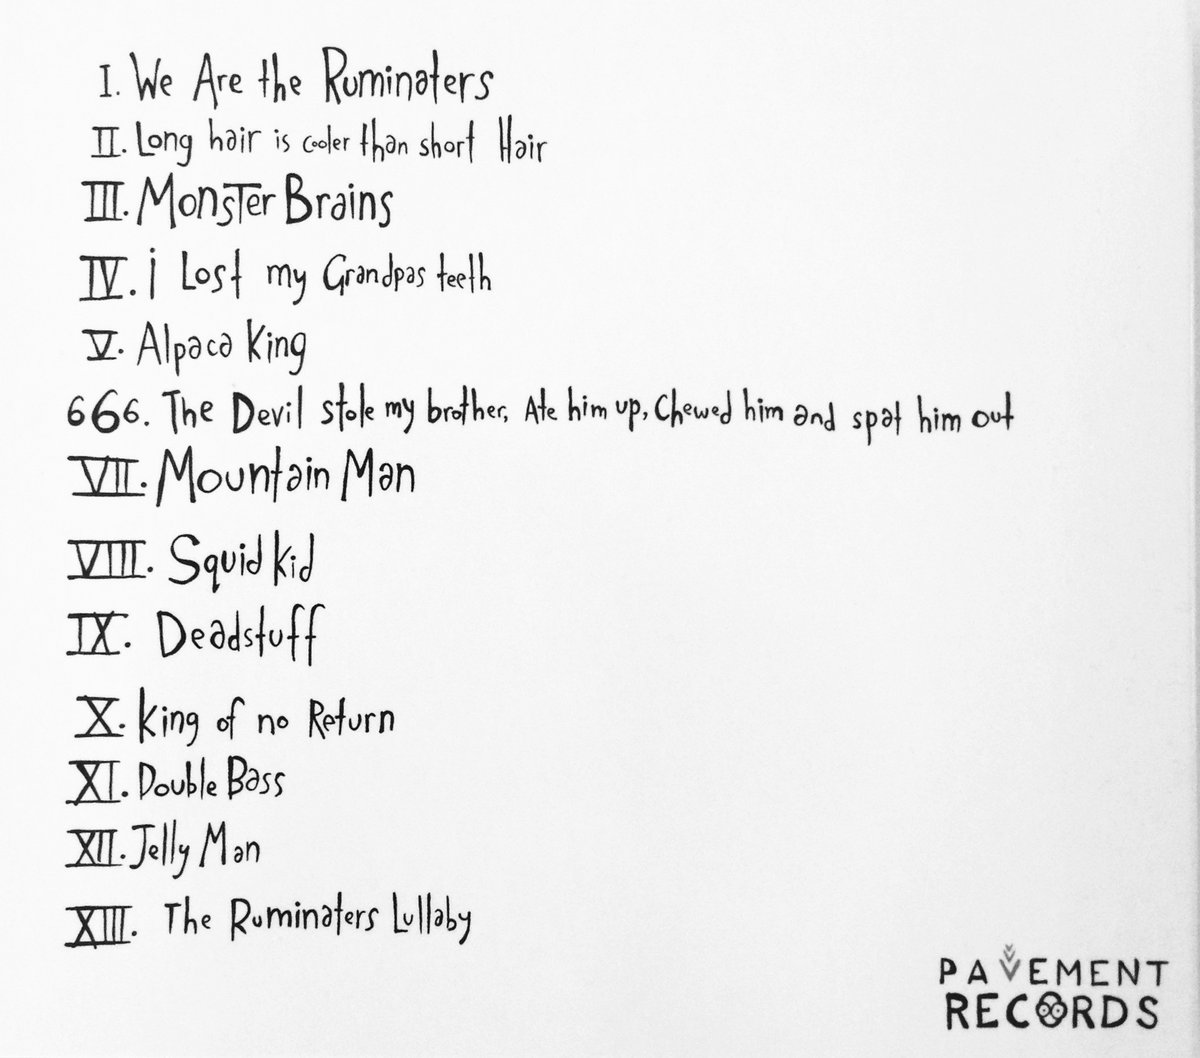 I. We Are the Ruminaters
II. Long hair is cooler than short Hair
III. Monster Brains
IV. i Lost my Grandpas teeth
V. Alpaca King
666. The Devil stole my brother, Ate him up, Chewed him and spat him out
VII. Mountain Man
VIII. Squid kid
IX. Deadstuff
X. King of no Return
XI. Double Bass
XII. Jelly Man
XIII. The Ruminaters Lullaby
PAVEMENT
RECORDS